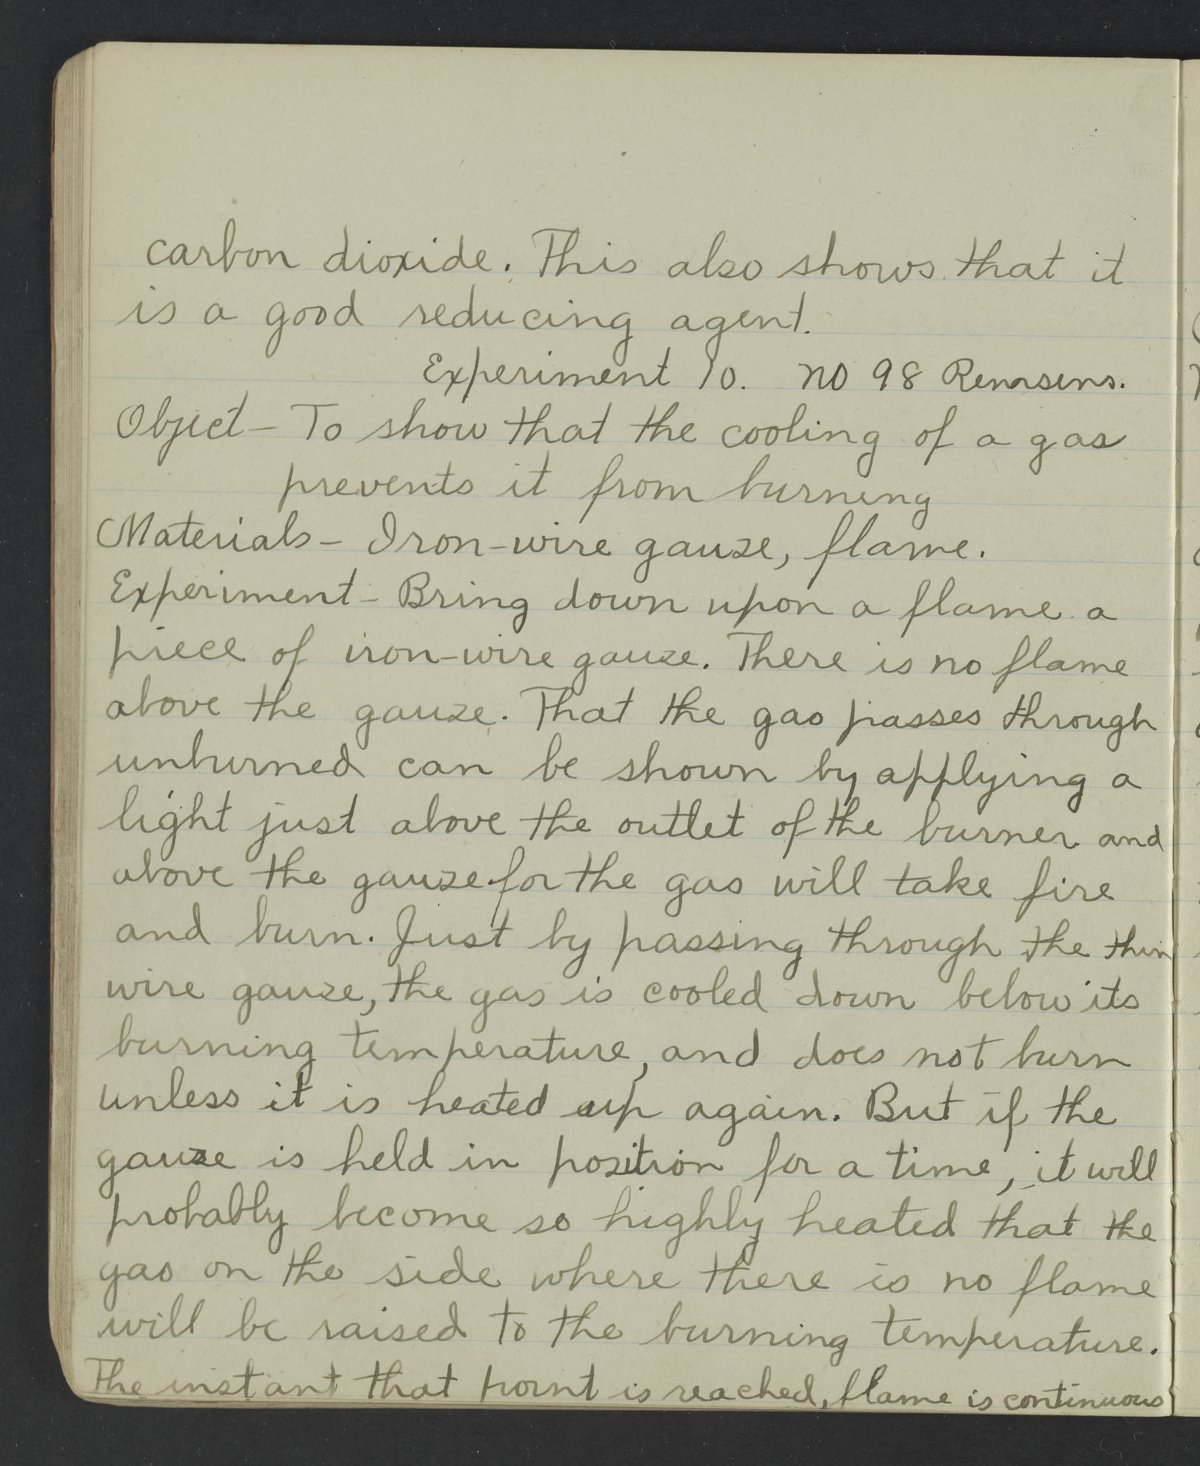 carbon dioxide. This also shows that it
is a good reducing agent.
Experiment 10. no 98 Remsens.
Object - To show that the cooling of a gas
prevents it from burning
Materials - Iron-wire gauze, flame.
Experiment - Bring down upon a flame a
piece of iron-wire gauze. There is no flame
above the gauze. That the gas passes through
unburned can be shown by applying a
light just above the outlet of the burner and
above the gauze for the gas will take fire
and burn. Just by passing through the thin
wire gauze, the gas is cooled down below its
burning temperature, and does not burn
unless it is heated up again. But if the
gauze is held in position for a time, it will
probably become so highly heated that the
gas on the side where there is no flame
will be raised to the burning temperature.
The instant that point is reached, flame is continuous